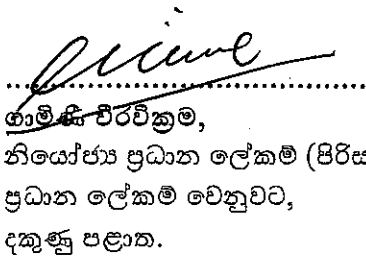 ගාමිණී වීරවික්‍රම,
නියෝජ්‍ය ප්‍රධාන ලේකම් (පිරිස
ප්‍රධාන ලේකම් වෙනුවට,
දකුණු පළාත.